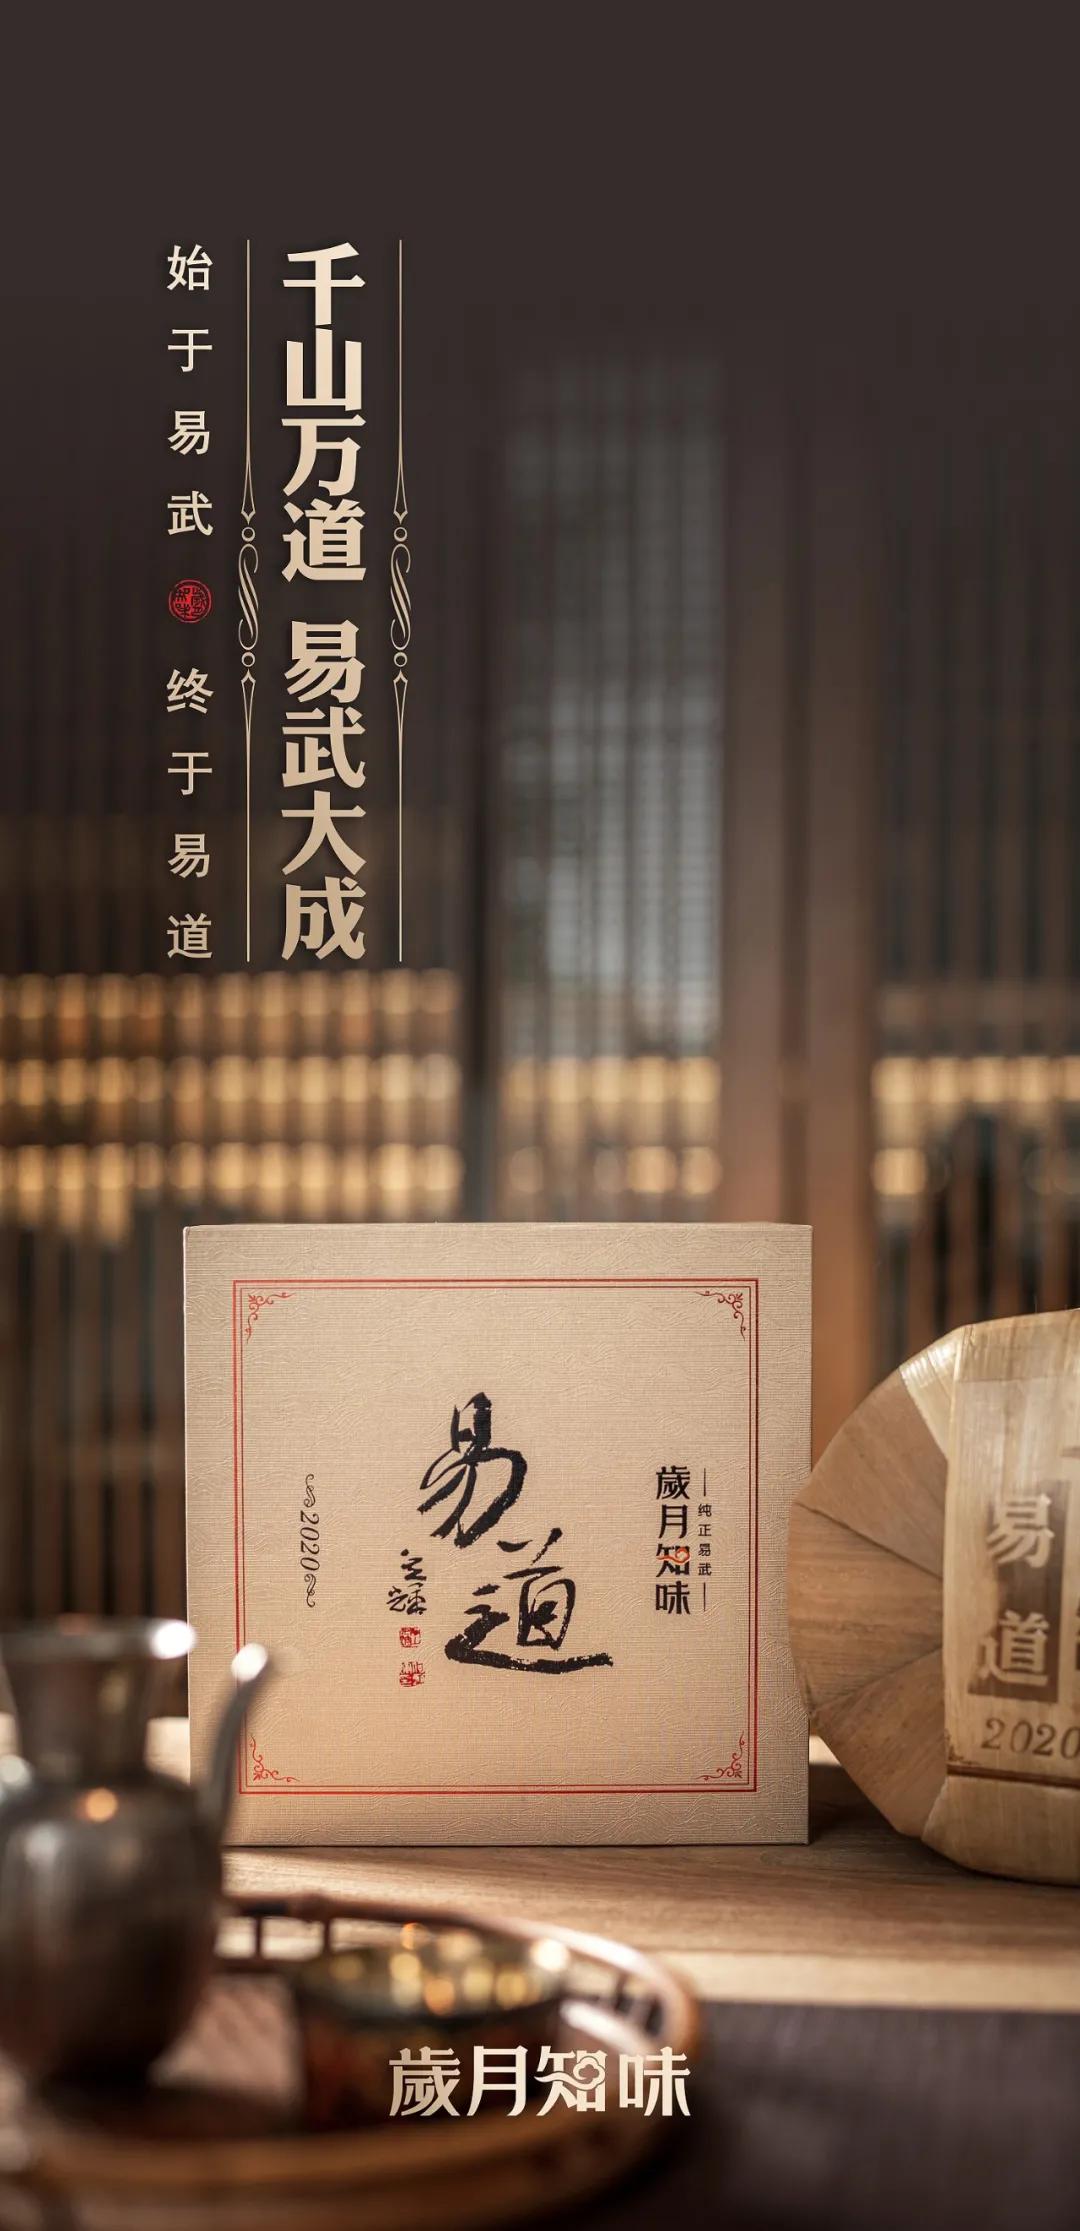 千山万道 易武大成
始于易武 终于易道
纯正易武
歲月知味
易道
2020
易道
2020
歲月知味